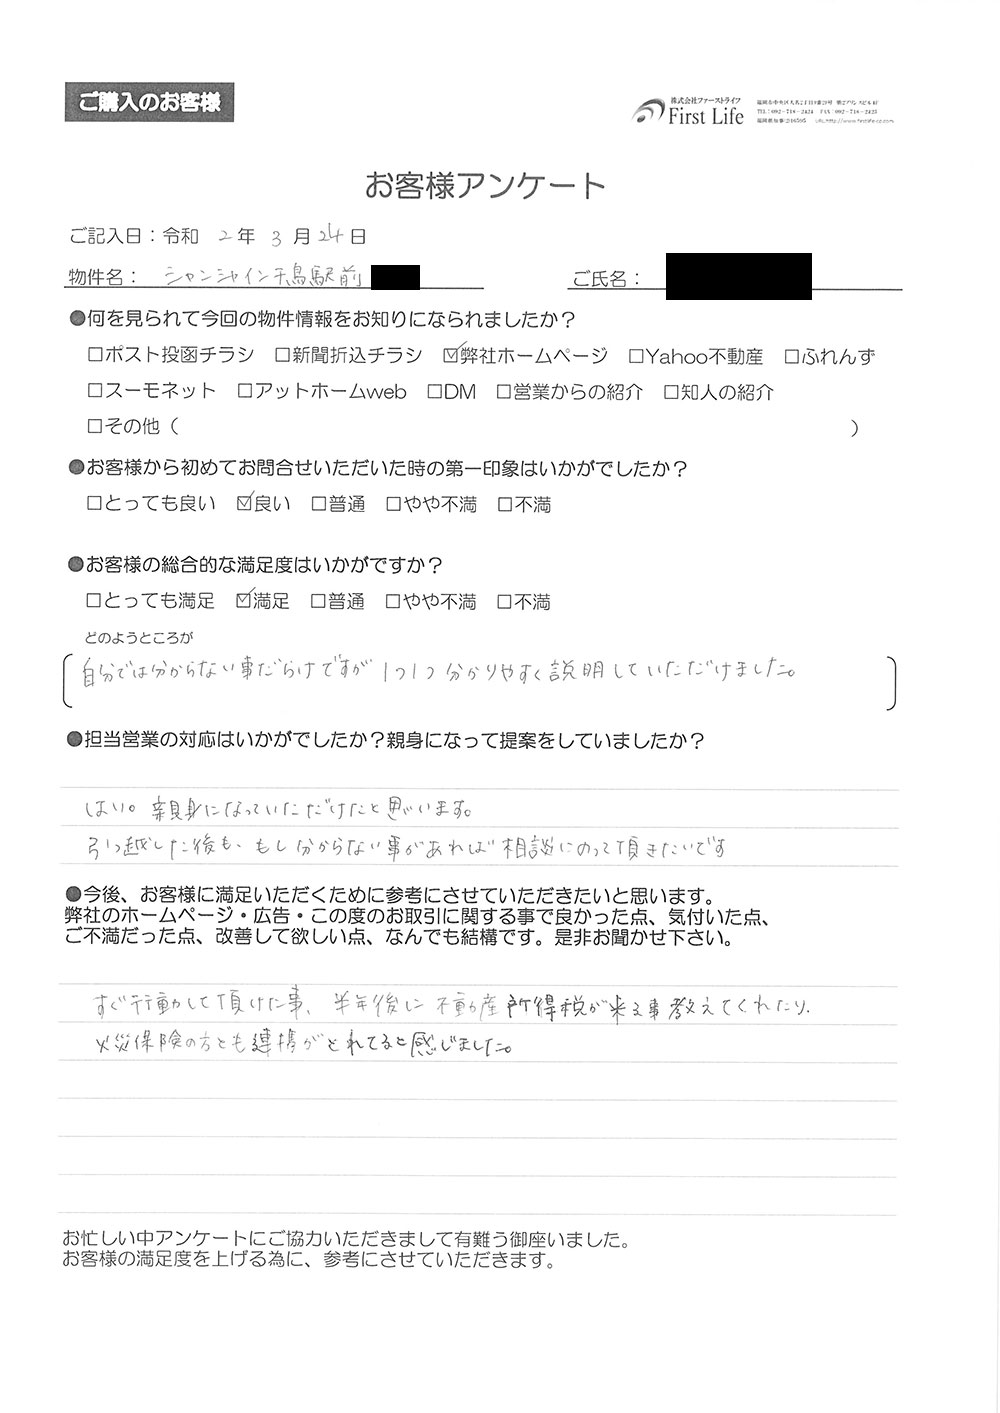 ご購入のお客様
株式会社ファーストライフ
First Life
TEL:092-718-2424 FAX:092-718-2425
お客様アンケート
ご記入日：令和 2年 3月24日
物件名： シャンシャイン千鳥駅前 ご氏名：
●何を見られて今回の物件情報をお知りになられましたか？
□ポスト投函チラシ □新聞折込チラシ ☑弊社ホームページ □Yahoo不動産 □ふれんず
□スーモネット □アットホームweb □DM □営業からの紹介 □知人の紹介
□その他（ ）
●お客様から初めてお問合せいただいた時の第一印象はいかがでしたか？
□とっても良い ☑良い □普通 □やや不満 □不満
●お客様の総合的な満足度はいかがですか？
□とっても満足 ☑満足 □普通 □やや不満 □不満
どのようところが
自分では分からない事だらけですが 1つ1つ分かりやすく説明していただけました。
●担当営業の対応はいかがでしたか？親身になって提案をしていましたか？
はい。親身になっていただけたと思います。
引っ越した後も、もし分からない事があれば相談にのって頂きたいです
●今後、お客様に満足いただくために参考にさせていただきたいと思います。
弊社のホームページ・広告・この度のお取引に関する事で良かった点、気付いた点、
ご不満だった点、改善して欲しい点、なんでも結構です。是非お聞かせ下さい。
すぐ行動して頂けた事、半年後に不動産所得税が来る事教えてくれたり、
火災保険の方とも連携がとれてると感じました。
お忙しい中アンケートにご協力いただきまして有難う御座いました。
お客様の満足度を上げる為に、参考にさせていただきます。